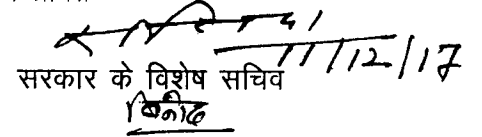 11/12/17
सरकार के विशेष सचिव
विनोद